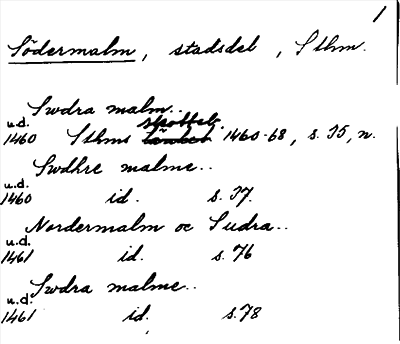 1
Södermalm, stadsdel, Sthm.
Swdra malm..
skotteb.
u.d.
1460 Sthms 1460-68, s. 35, n.
Swdhre malme..
u.d.
1460 id. s. 37.
Nordermalm oc Sudra..
u.d.
1461 id. s. 76
Swdra malme..
u.d.
1461 id. s. 78